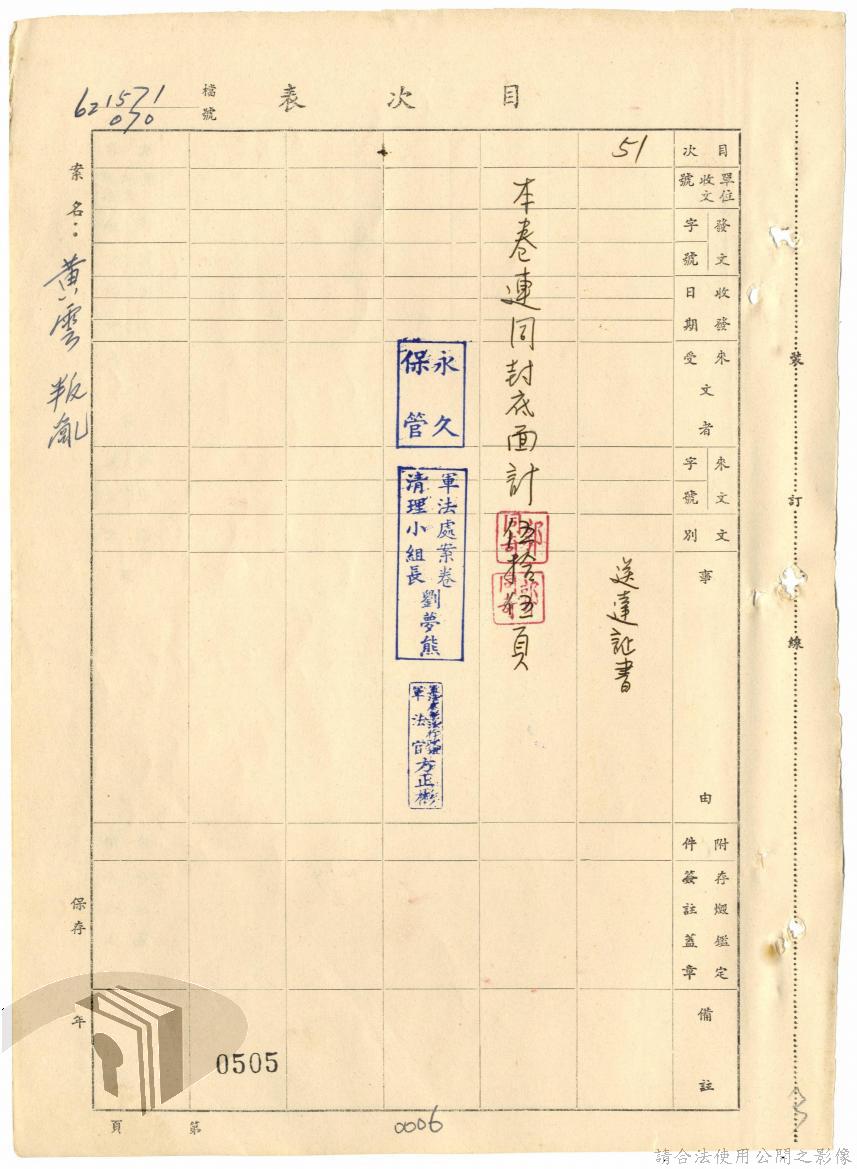 目次表
檔號
62 1571
070
案名：黃雲 叛亂
目次
單位收文號
發文字號
收發日期
來文受文者
來文字號
文別
事由
附件
存燬鑑定簽註蓋章
備註
51
送達証書
本卷連同封底面計伍拾五頁
永久
保管
軍法處案卷
清理小組長 劉夢熊
軍法官 方正彬
裝
訂
線
保存 年
0505
第 頁
0006
請合法使用公開之影像